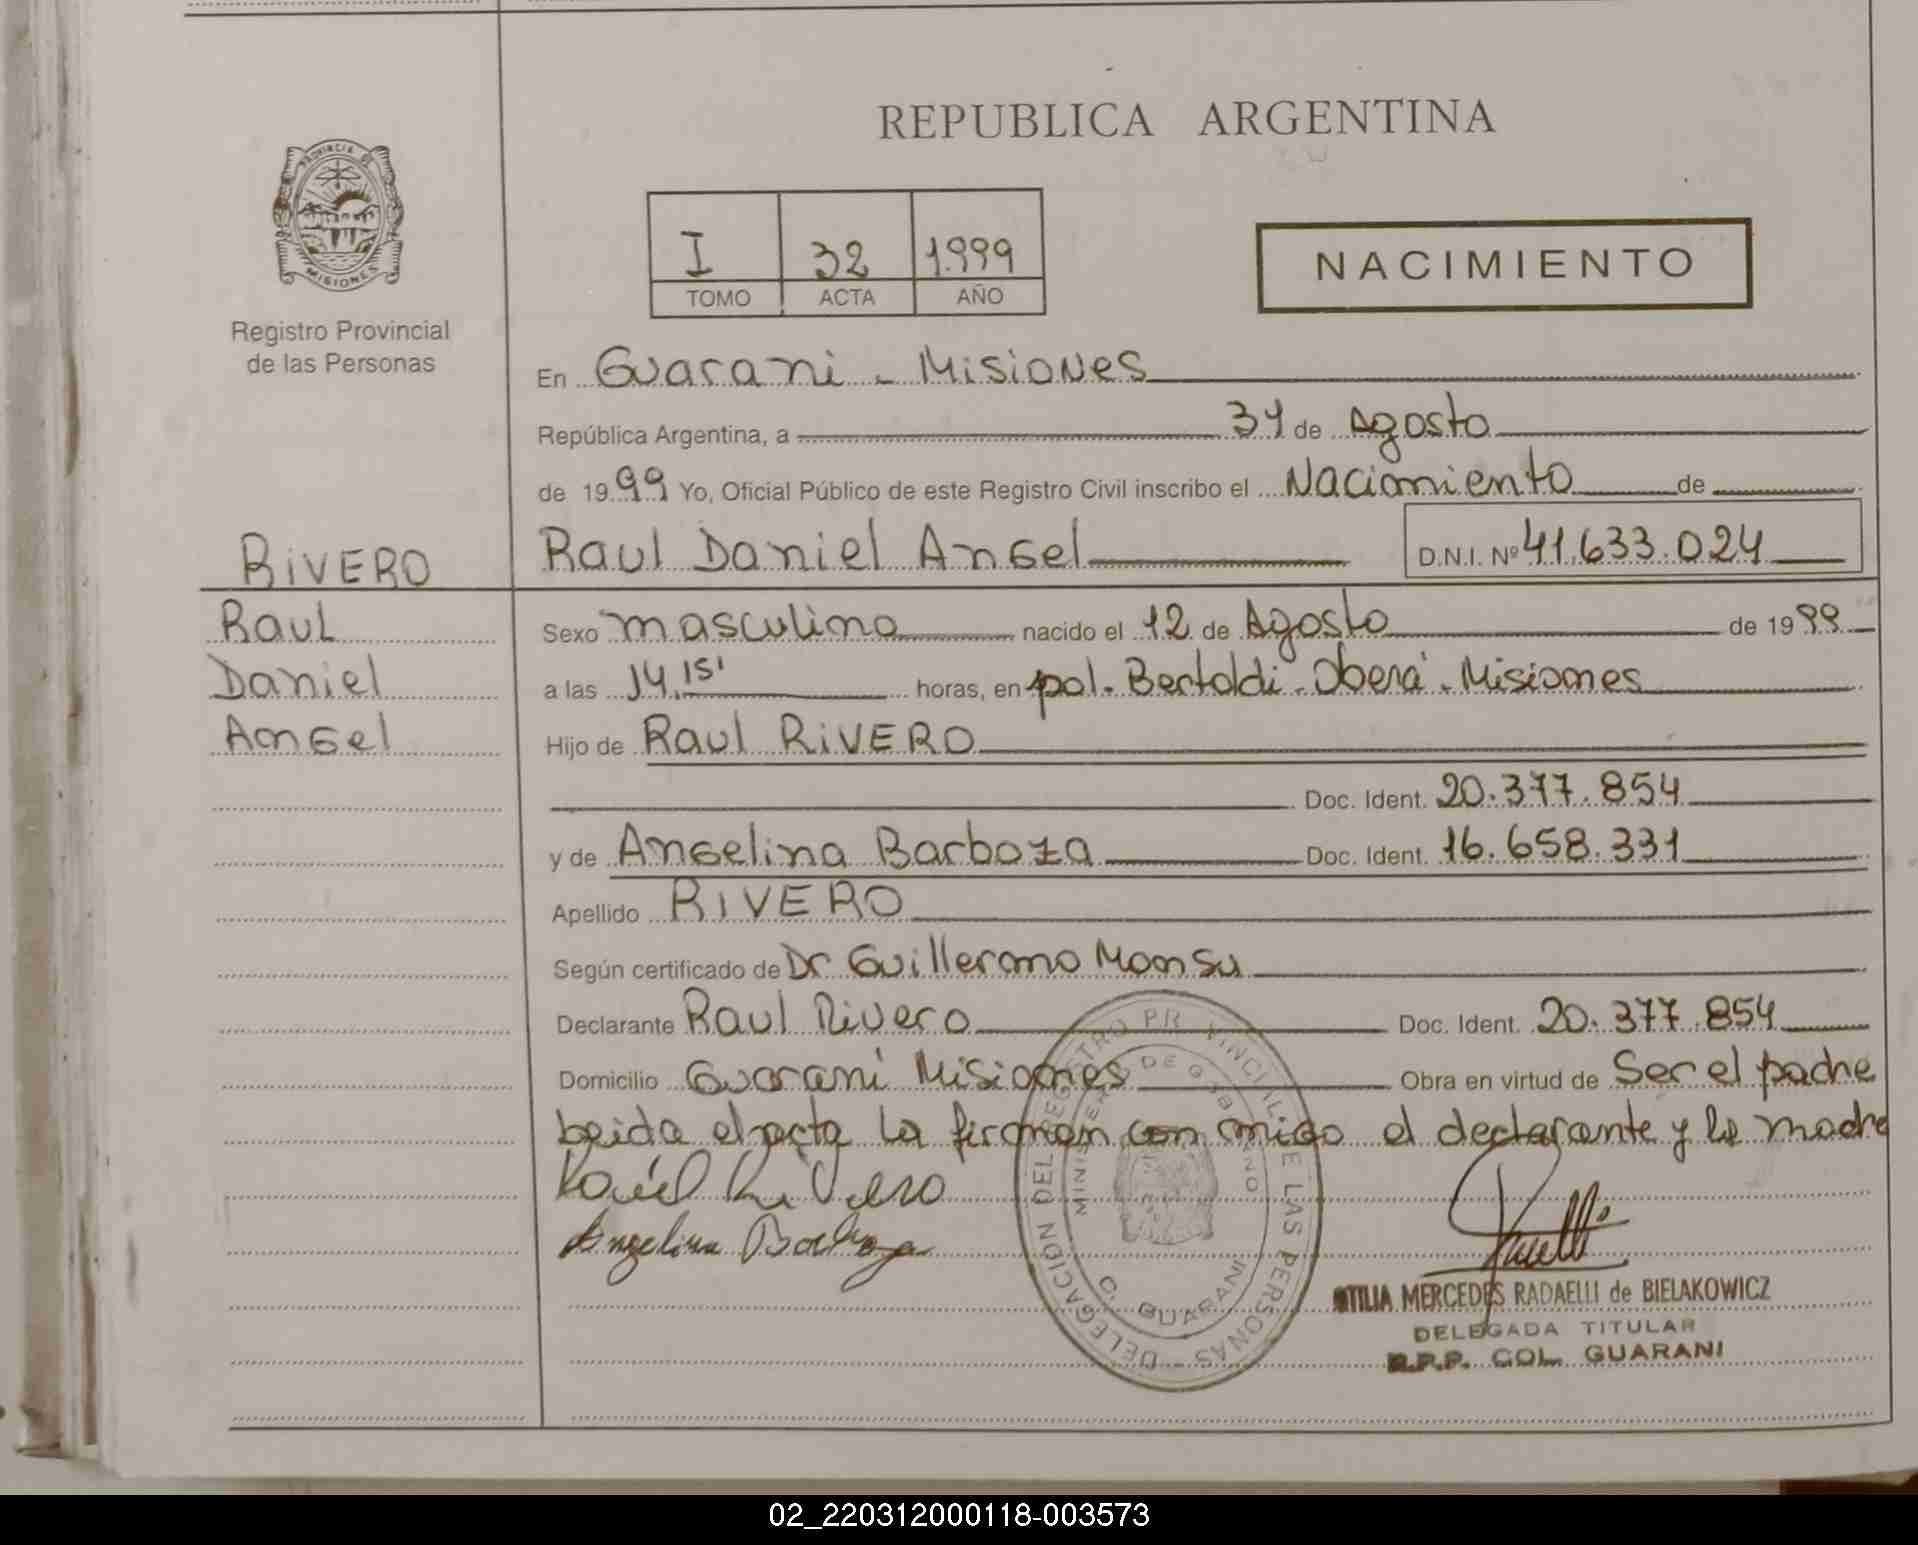 REPUBLICA ARGENTINA
PROVINCIA DE
MISIONES
Registro Provincial
de las Personas
I 32 1.999
TOMO ACTA AÑO
NACIMIENTO
En Guarani - Misiones
República Argentina, a 31 de Agosto
de 1999 Yo, Oficial Público de este Registro Civil inscribo el Nacimiento de
RIVERO Raul Daniel Angel D.N.I. Nº 41.633.024
Raul
Daniel
Angel
Sexo masculino nacido el 12 de Agosto de 1999
a las 14,15' horas, en pol. Bertoldi - Oberá - Misiones
Hijo de Raul RIVERO
Doc. Ident. 20.377.854
y de Angelina Barboza Doc. Ident. 16.658.331
Apellido RIVERO
Según certificado de Dr Guillermo Monsu
Declarante Raul Rivero Doc. Ident. 20.377.854
Domicilio Guaraní Misiones Obra en virtud de Ser el padre
leida el acta la firman con migo el declarante y la madre
Rivero
Angelina Barboza
DELEGACION DEL REGISTRO PR VINCIAL DE LAS PERSONAS
MINISTERIO DE GOBIERNO
C. GUARANI
OTILIA MERCEDES RADAELLI de BIELAKOWICZ
DELEGADA TITULAR
R.P.P. COL. GUARANI
02_220312000118-003573